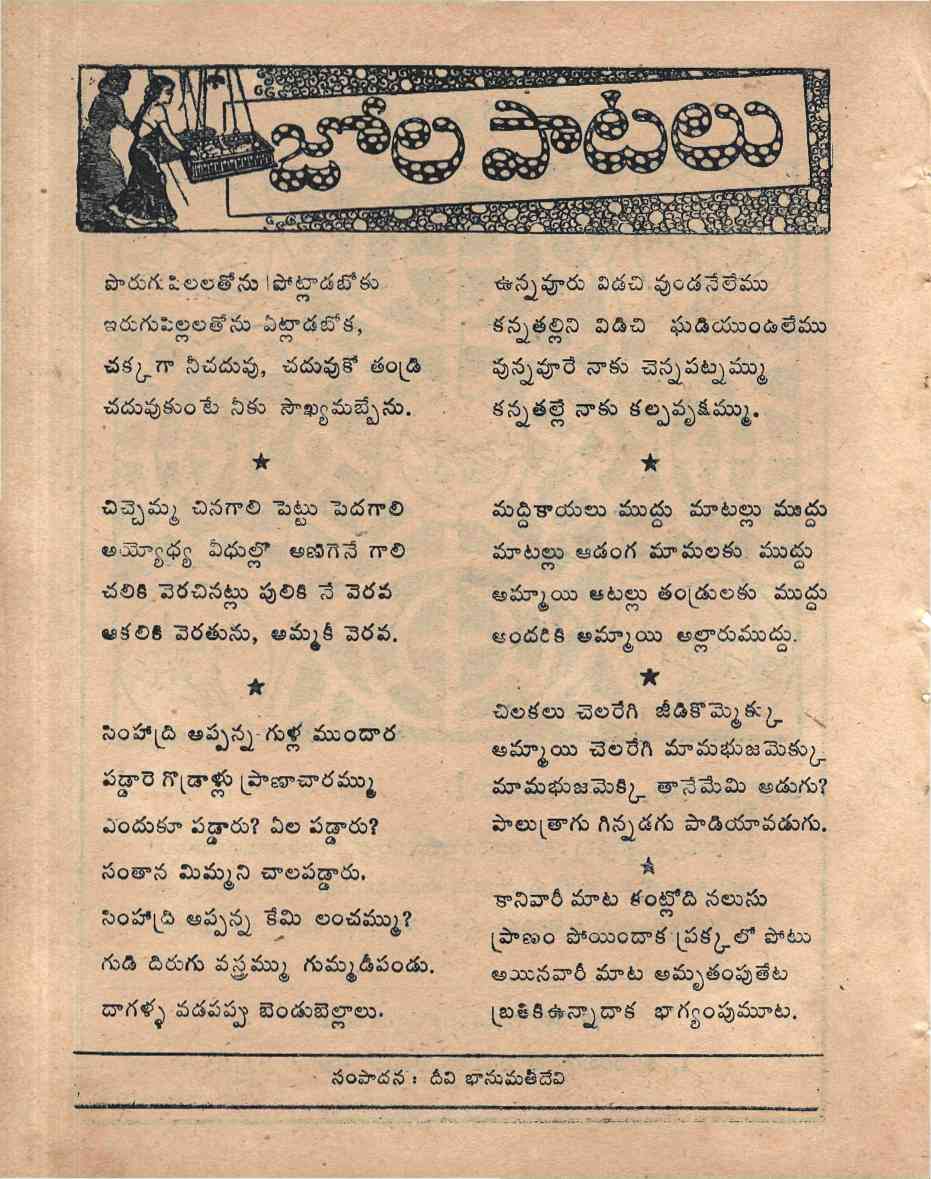 జోల పాటలు
పొరుగుపిలలతోను పోట్లాడబోకు
ఇరుగుపిల్లలతోను ఏట్లాడబోక,
చక్కగా నీచదువు, చదువుకో తండ్రి
చదువుకుంటే నీకు సౌఖ్యమబ్బేను.
★
చిచ్చెమ్మ చినగాలి పెట్టు పెదగాలి
అయ్యోధ్య వీధుల్లో అణిగెనే గాలి
చలికి వెరచినట్లు పులికి నే వెరవ
ఆకలికి వెరతును, అమ్మకీ వెరవ.
★
సింహాద్రి అప్పన్న గుళ్ల ముందార
పడ్డారె గొడ్రాళ్లు ప్రాణాచారమ్ము
ఎందుకూ పడ్డారు? ఏల పడ్డారు?
సంతాన మిమ్మని చాలపడ్డారు.
సింహాద్రి అప్పన్న కేమి లంచమ్ము?
గుడి దిరుగు వస్త్రమ్ము గుమ్మడీపండు.
దాగళ్ళ వడపప్పు బెండుబెల్లాలు.
ఉన్నవూరు విడచి వుండనేలేము
కన్నతల్లిని విడిచి ఘడియుండలేము
వున్నవూరే నాకు చెన్నపట్నమ్ము
కన్నతల్లే నాకు కల్పవృక్షమ్ము.
★
మద్దికాయలు ముద్దు మాటల్లు ముద్దు
మాటల్లు ఆడంగ మామలకు ముద్దు
అమ్మాయి ఆటల్లు తండ్రులకు ముద్దు
అందరికి అమ్మాయి అల్లారుముద్దు.
★
చిలకలు చెలరేగి జీడికొమ్మెక్కు
అమ్మాయి చెలరేగి మామభుజమెక్కు
మామభుజమెక్కి తానేమేమి అడుగు?
పాలుత్రాగు గిన్నడగు పాడియావడుగు.
★
కానివారీ మాట కంట్లోది నలుసు
ప్రాణం పోయిందాక ప్రక్కలో పోటు
అయినవారీ మాట అమృతంపుతేట
బ్రతికిఉన్నాదాక భాగ్యంపుమూట.
సంపాదన : దీవి భానుమతీదేవి